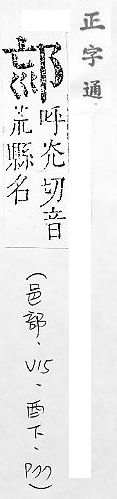 正字通
呼光切音
荒縣名
(邑部、V15、酉下、P77)